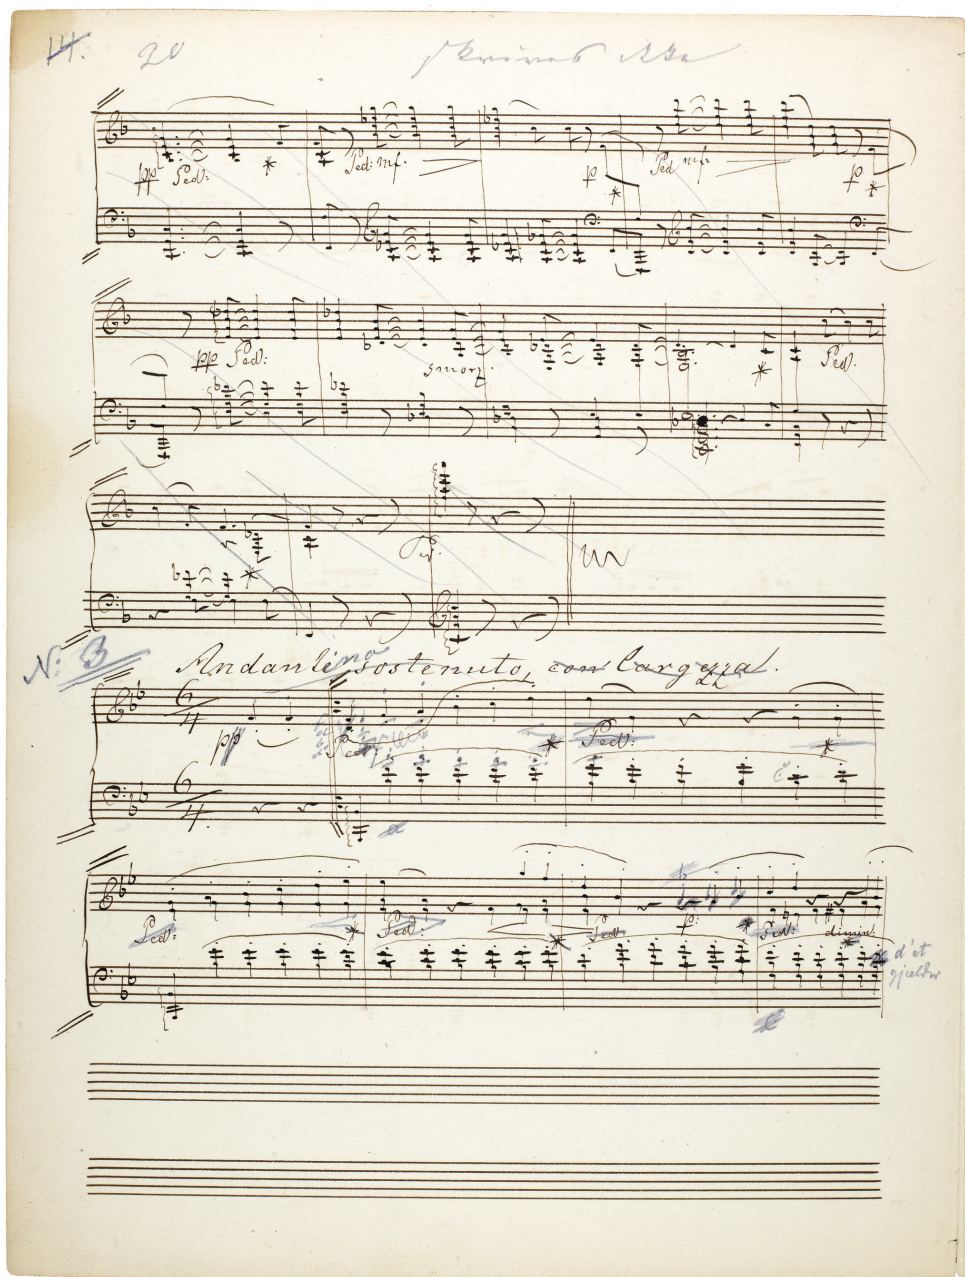 14. 20 skrives ikke
pp Ped: * Ped: mf. p * Ped mf: p *
pp Ped: smorz. * Ped.
* Ped.
N: 3 Andantino sostenuto, con largezza.
6/4 pp Ped: * Ped: *
6/4
Ped: * Ped: * Ped: p: * Ped: dimin: *
d'et
gjælder